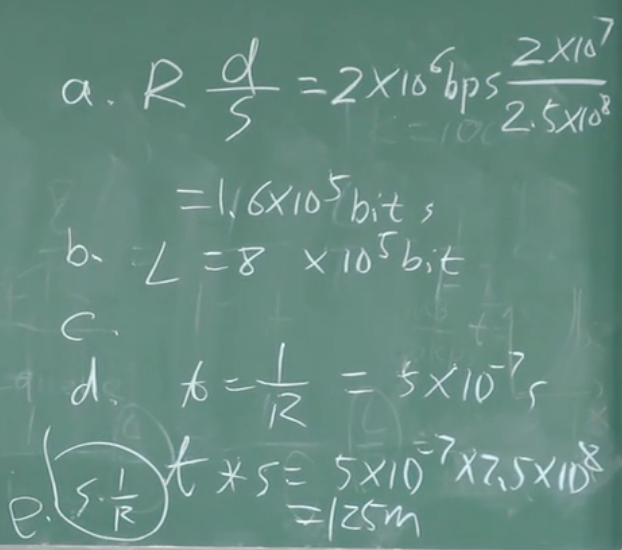 a. R d/s = 2×10⁶bps 2×10⁷/2.5×10⁸
=1.6×10⁵bits
b. L = 8 ×10⁵bit
c.
d. t = 1/R = 5×10⁻⁷s
e. s·1/R t*s= 5×10⁻⁷×2.5×10⁸
=125m